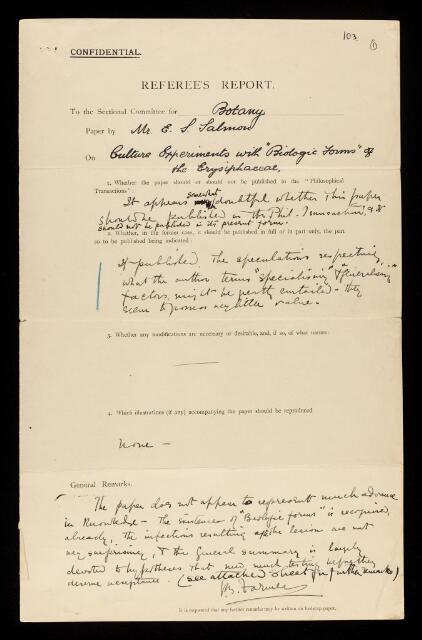 103
①
CONFIDENTIAL.
REFEREE'S REPORT.
To the Sectional Committee for Botany
Paper by Mr. E. S. Salmon
On Culture Experiments with "Biologic Forms" of
the Erysiphaceae,
1. Whether the paper should or should not be published in the "Philosophical
Transactions":
somewhat
It appears doubtful whether this paper
should be published in the Phil. Transactions, &
should not be published in its present form.
2. Whether, in the former case, it should be published in full or in part only, the part
so to be published being indicated:
If published, the speculations respecting
what the author terms "specialising" &
factors, might be greatly curtailed – they
seem to possess very little value.
3. Whether any modifications are necessary or desirable, and, if so, of what nature:
4. Which illustrations (if any) accompanying the paper should be reproduced
None –
General Remarks.
The paper does not appear to represent much advance
in knowledge – The existence of "Biologic forms" is recognised
already, the infections resulting after the lesion are not
very surprising, & the general summary is largely
devoted to hypotheses that need much testing before they
deserve acceptance. (see attached sheet for further remarks)
J. B. Farmer
It is requested that any further remarks may be written on foolscap paper.